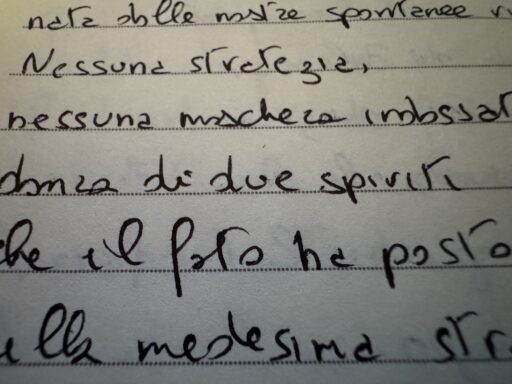 nata dalle nostre spontanee
Nessuna strategia,
nessuna maschera indossat
danza di due spiriti
che il fato ha posto
ella medesima stra